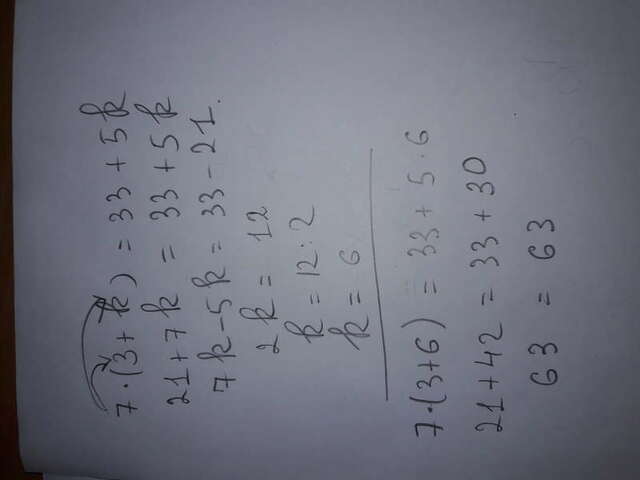 7·(3+k) = 33+5k
21+7k = 33+5k
7k-5k = 33-21.
2k = 12
k = 12:2
k = 6
7·(3+6) = 33+5·6
21+42 = 33+30
63 = 63